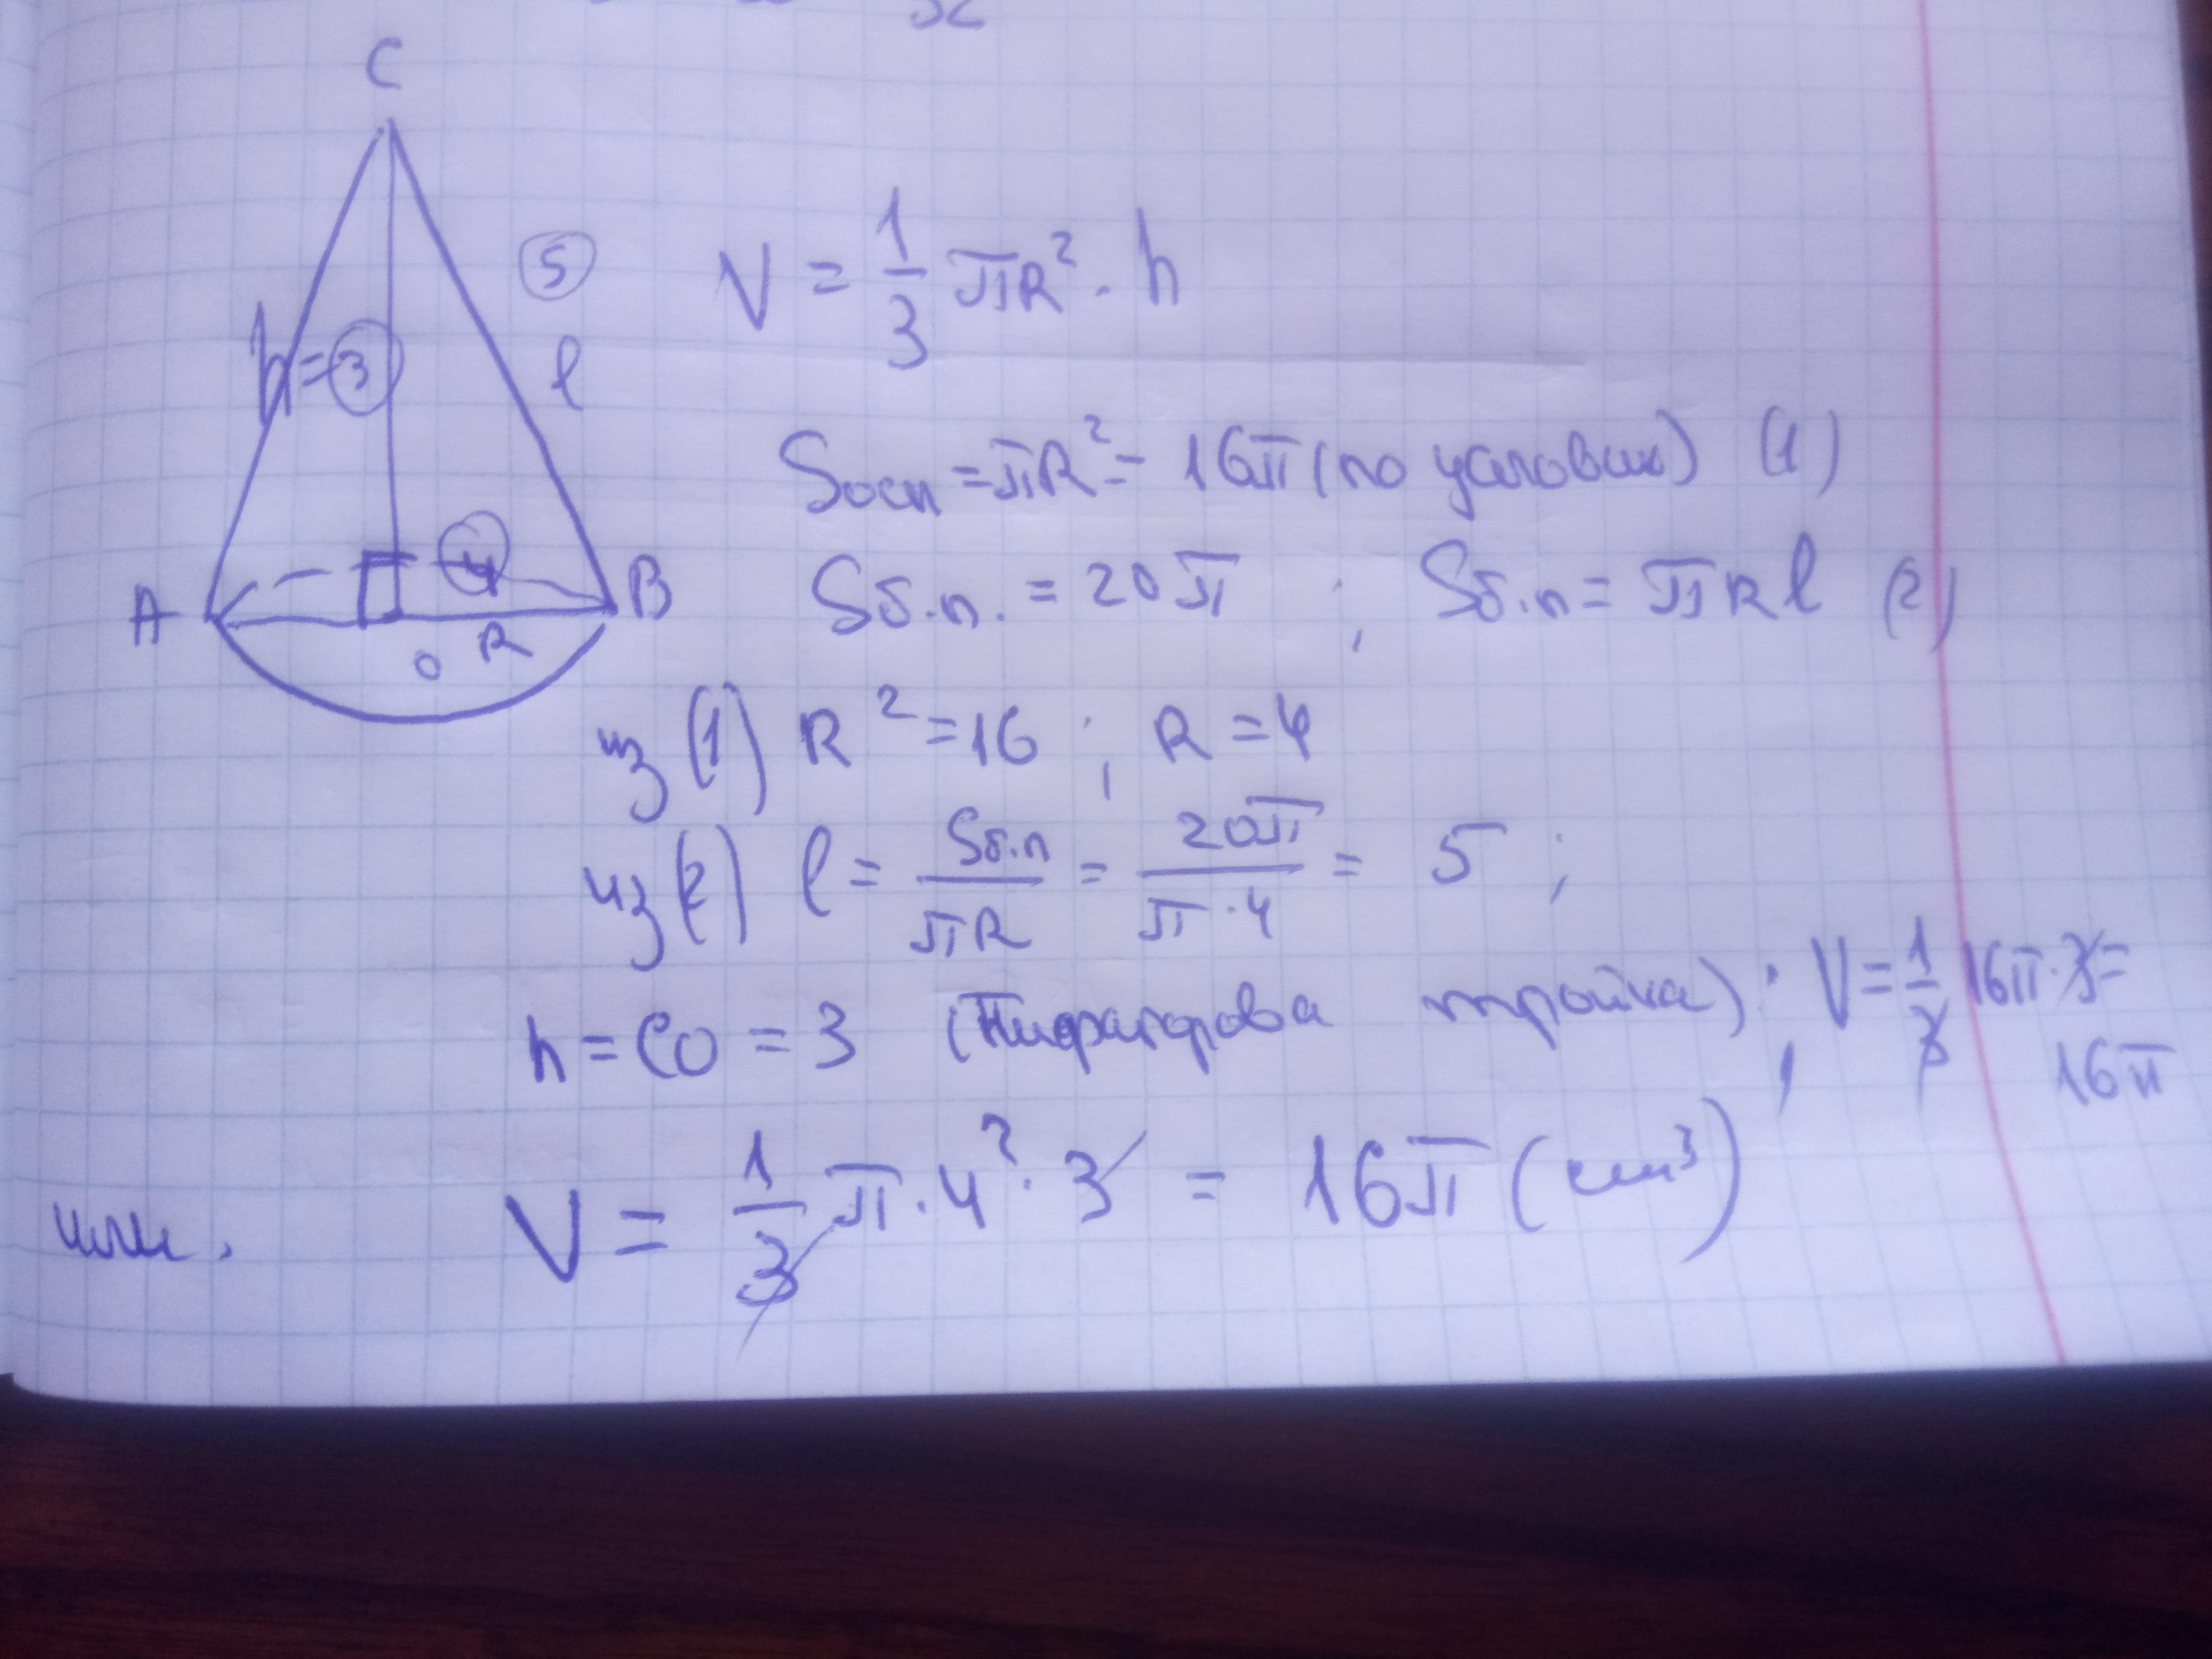 C
5
V = 1/3 πR² · h
h=3
l
Sосн = πR² = 16π (по условию) (1)
4
A B
O R
Sб.п. = 20π ; Sб.п = πRl (2)
из (1) R² = 16 ; R = 4
из (2) l = Sб.п/πR = 20π/π·4 = 5 ;
h = CO = 3 (Пифагорова тройка) ; V = 1/3 16π · 3 =
16π
или. V = 1/3 π · 4² · 3 = 16π (см³)